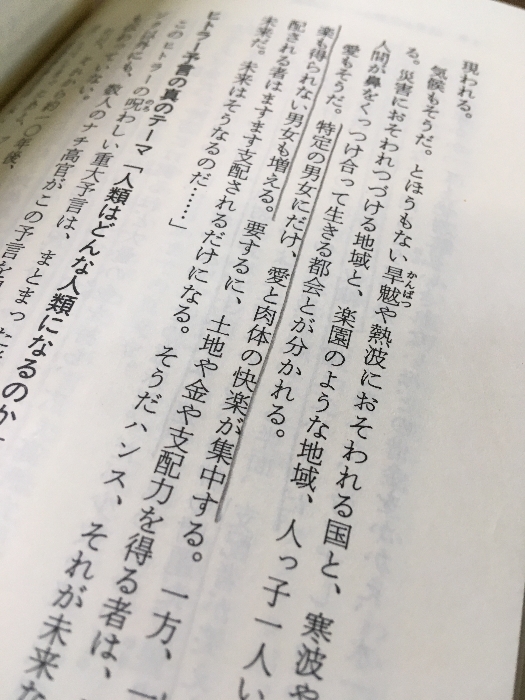 現われる。
気候もそうだ。とほうもない旱魃や熱波におそわれる国と、寒波や
かんばつ
る。災害におそわれつづける地域と、楽園のような地域、人っ子一人い
人間が鼻をくっつけ合って生きる都会とが分かれる。
愛もそうだ。特定の男女にだけ、愛と肉体の快楽が集中する。一方、
楽も得られない男女も増える。要するに、土地や金や支配力を得る者は、
配される者はますます支配されるだけになる。そうだハンス、それが未来な
未来だ。未来はそうなるのだ……」
ヒトラー予言の真のテーマ「人類はどんな人類になるのか
このヒトラーの呪わしい重大予言は、まとまった
のろ
以外にも、数人のナチ高官がこの予言を